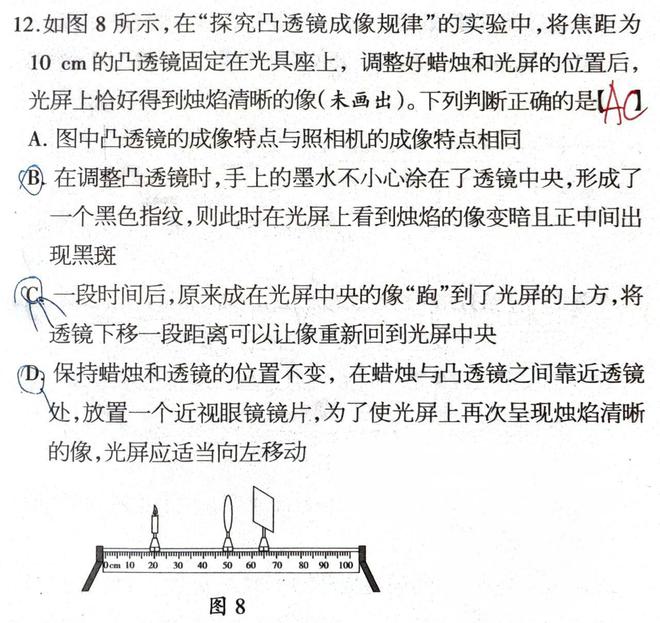 12.如图 8 所示,在“探究凸透镜成像规律”的实验中,将焦距为
10 cm 的凸透镜固定在光具座上，调整好蜡烛和光屏的位置后,
光屏上恰好得到烛焰清晰的像(未画出)。下列判断正确的是【AC】
A. 图中凸透镜的成像特点与照相机的成像特点相同
B. 在调整凸透镜时,手上的墨水不小心涂在了透镜中央,形成了
一个黑色指纹,则此时在光屏上看到烛焰的像变暗且正中间出
现黑斑
C. 一段时间后,原来成在光屏中央的像“跑”到了光屏的上方,将
透镜下移一段距离可以让像重新回到光屏中央
D. 保持蜡烛和透镜的位置不变，在蜡烛与凸透镜之间靠近透镜
处,放置一个近视眼镜镜片,为了使光屏上再次呈现烛焰清晰
的像,光屏应适当向左移动
0cm 10 20 30 40 50 60 70 80 90 100
图 8